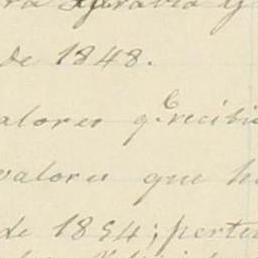 de 1848.
valores q.e recibi
valores que h
de 1854; perten